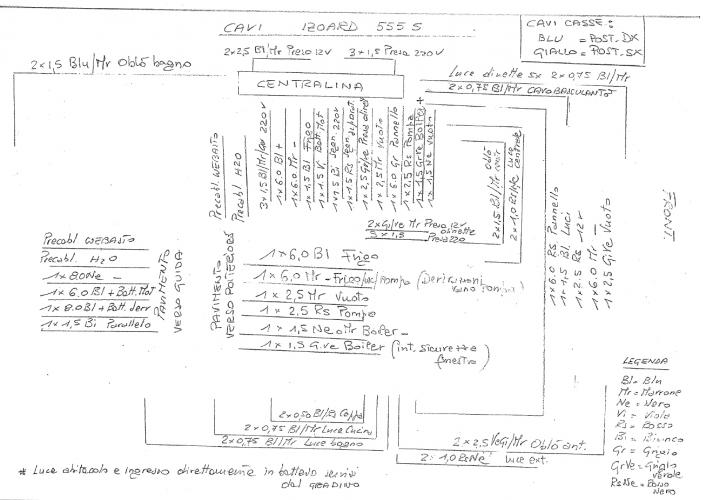 CAVI IZOARD 555 S
CAVI CASSE:
BLU = POST. DX
GIALLO = POST. SX
2x2,5 Bl/Mr Presa 12V
3x1,5 Presa 220V
2x1,5 Blu/Mr Oblò bagno
CENTRALINA
Luce dinette sx 2x0,75 Bl/Mr
2x0,75 Bl/Mr CAVO BASCULANTE
Precabl. WEBASTO
Precabl. H2O
3x1,5 Bl/Mr/Gv 220V
1x6.0 Bl +
1x6.0 Mr -
1x1.5 Vi Batt. Mot
1x1,5 Bi Segn. 220V
1x1,5 Rs Segn.
1x2,5 Mr Vuoto
1x6.0 Gr Pannello
1x2.5 Rs Pompa
1x1,5 GrVe Boiler +
1x1,5 Ne Vuoto -
2x1,5 Bl/Mr
Oblò
2x1,0 Bl/Ne Luce
Centrale
FRONT.
Presa 12V
dinette
3x1,5
Presa 220
1x6.0 Rs Pannello
1x1,5 Bl. Luci
1x2.5 Rs 12V
1x6.0 Mr -
1x2,5 GrVe Vuoto
Precabl WEBASTO
Precabl. H2O
1x8.0 Ne -
1x6.0 Bl + Batt. Mot
1x8.0 Bl + Batt. serv
1x1,5 Bi Parallelo
PAVIMENTO
VERSO GUIDA
PAVIMENTO
VERSO POSTERIORE
1x6.0 Bl Frigo
1x6,0 Mr - Frigo/ /Pompa (Derivazioni
vano pompa)
1x2,5 Mr Vuoto
1x2.5 Rs Pompa
1x1,5 Ne o Mr Boiler -
1x1,5 GrVe Boiler (int. sicurezza
finestra)
LEGENDA
Bl = Blu
Mr = Marrone
Ne = Nero
Vi = Viola
Rs = Rosso
Bi = Bianco
Gr = Grigio
GrVe = Grigio
verde
RsNe = Rosso
nero
2x0,50 Bl/Bi Cappa
2x0,75 Bl/Mr Luce Cucina
2x0.75 Bl/Mr Luce bagno
2x2,5 /Mr Oblò ant.
2x1,0 RsNe Luce ext.
* Luce abitacolo e ingresso direttamente in batteria servizi
dal GRADINO